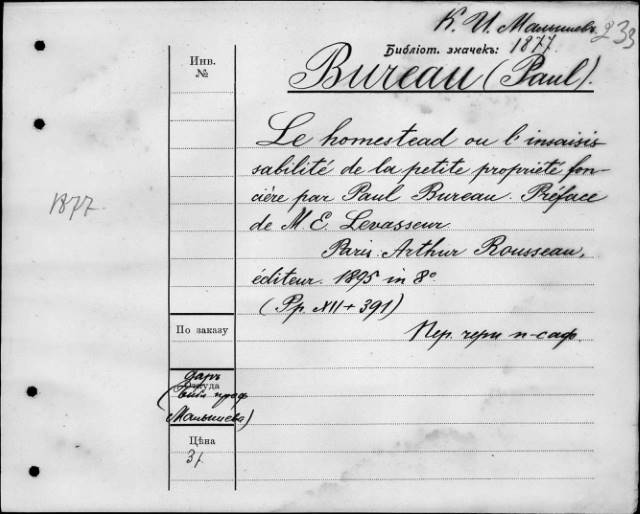 К. И. Малышев 233
Библіот. значекъ: 1877
Bureau (Paul).
Инв.
№
Le homestead ou l'insaisis
sabilité de la petite propriété fon
cière par Paul Bureau. Préface
1877
de M. E. Levasseur
Paris. Arthur Rousseau,
éditeur. 1895 in 8º
(Pp. XII + 391)
По заказу
Пер. черн п-саф.
Даръ
Откуда
(Библ проф
Малышева)
Цѣна
3р